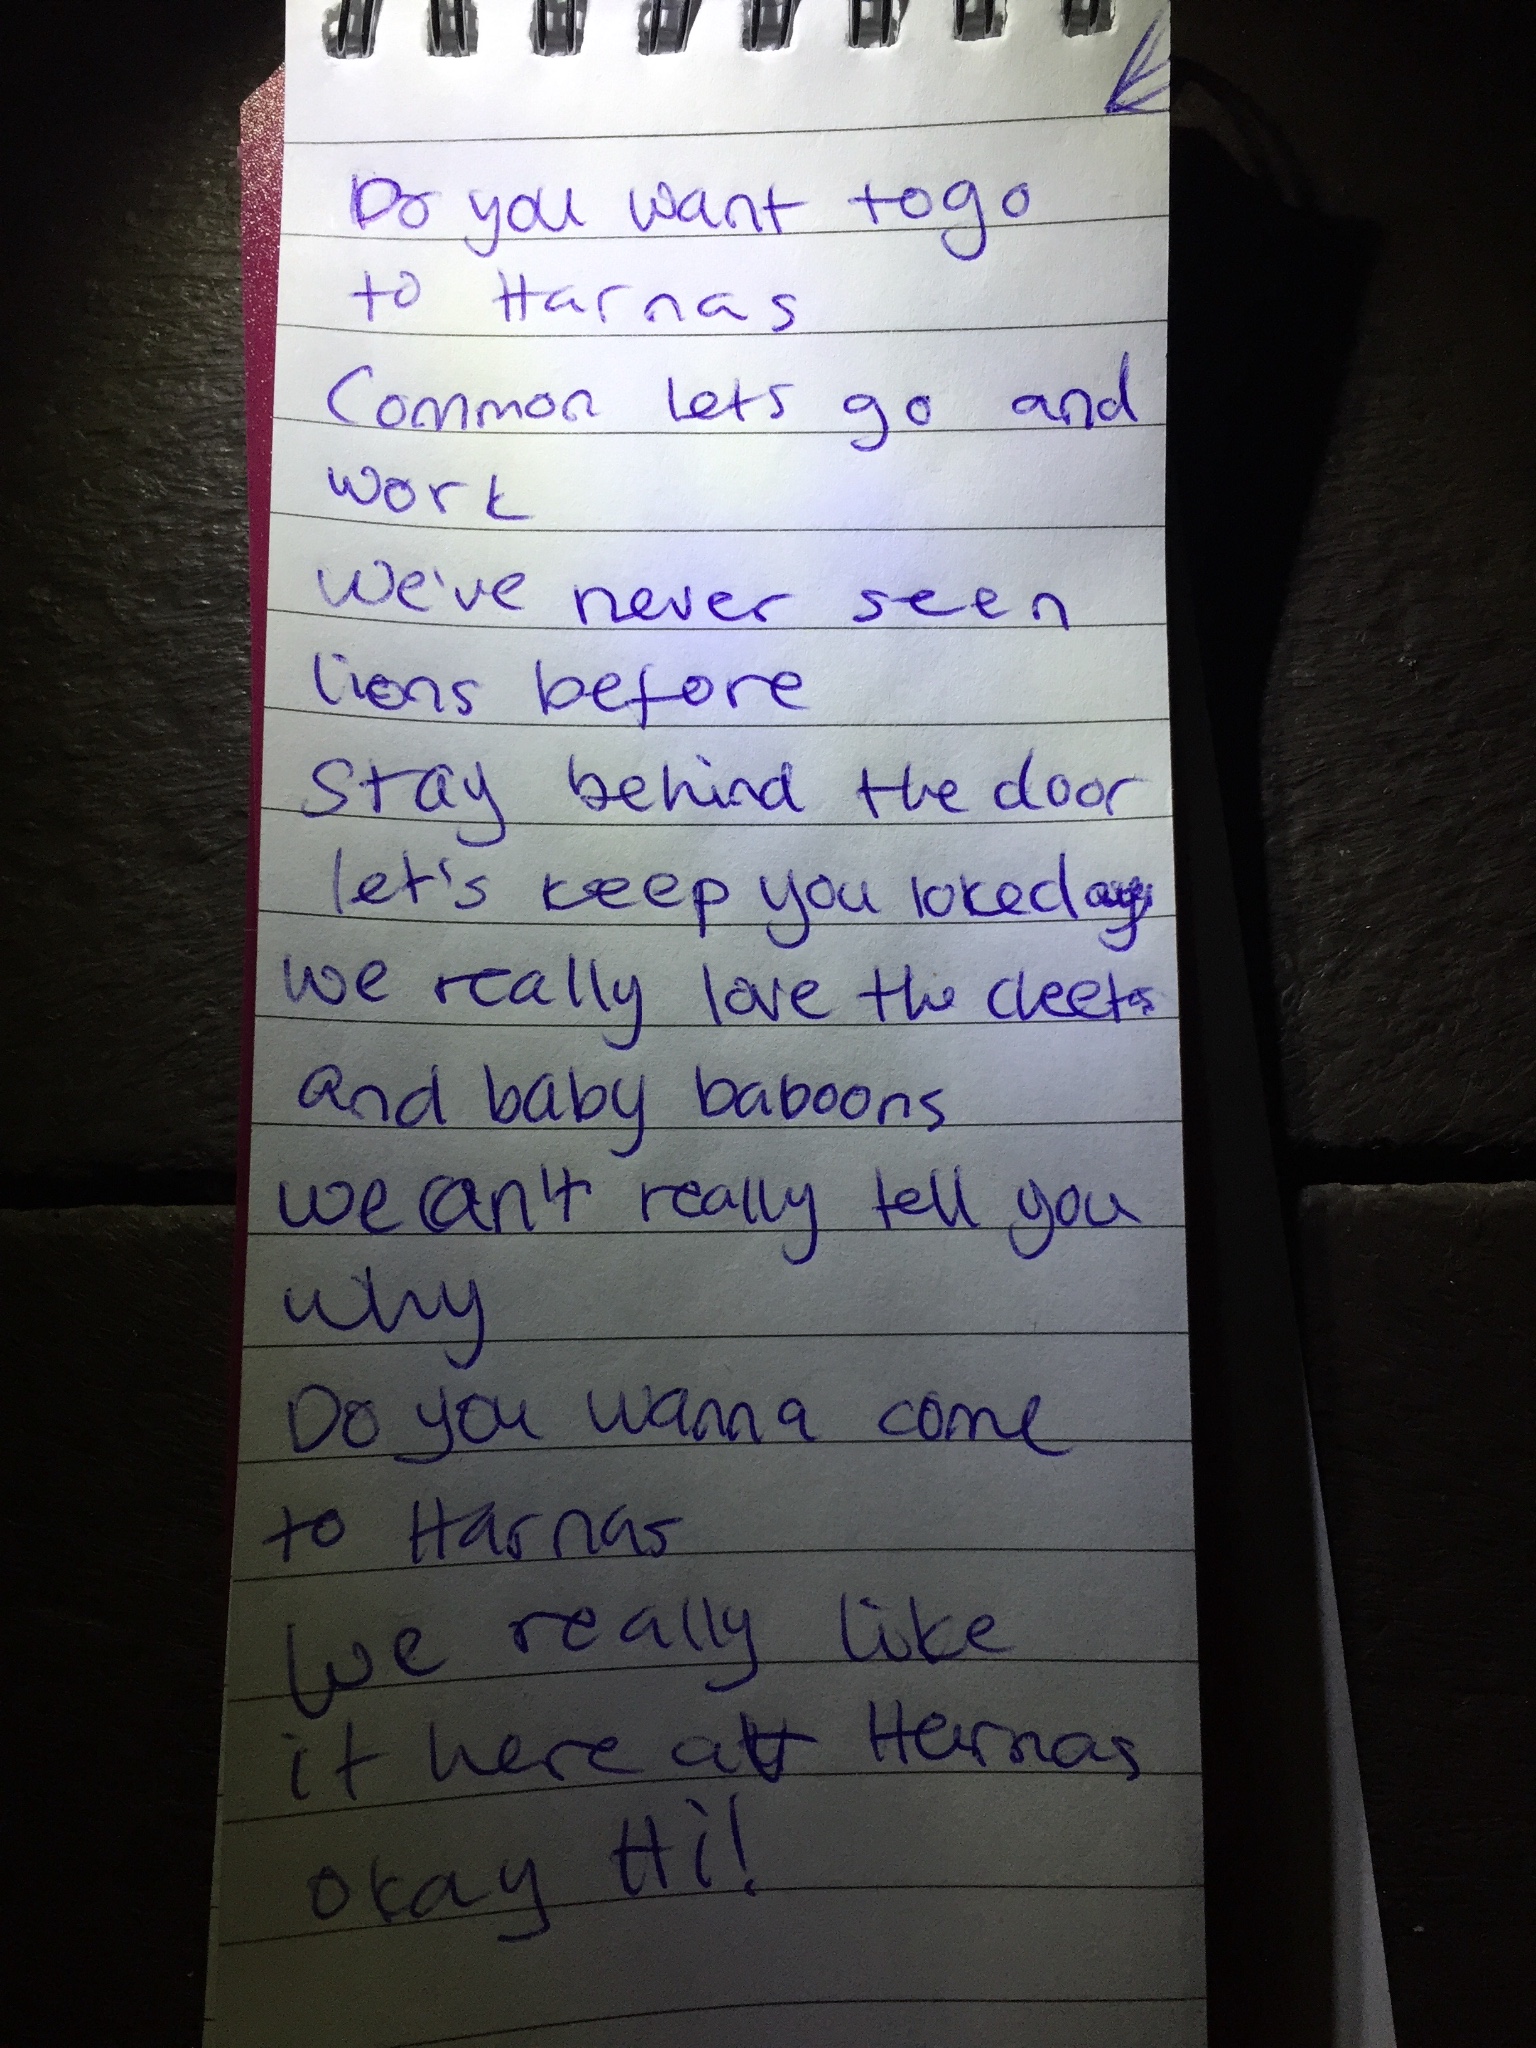 Do you want to go
to Harnas
Common lets go and
work
We've never seen
lions before
Stay behind the door
let's keep you loked
we really love the cleets
and baby baboons
we can't really tell you
why
Do you wanna come
to Harnas
We really like
it here at Harnas
okay Hi!